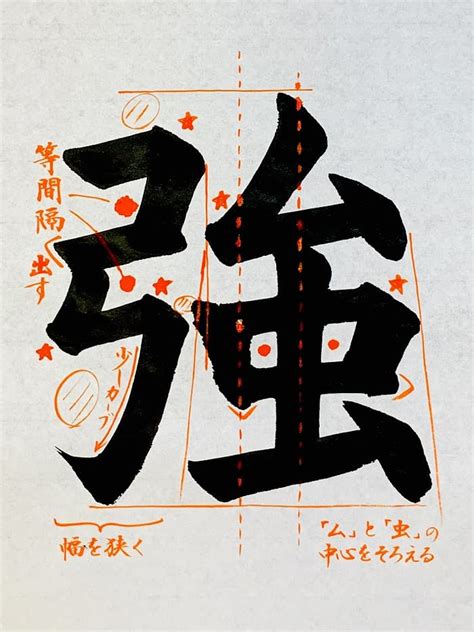 強
等間隔
出す
少しカーブ
幅を狭く
「ム」と「虫」の
中心をそろえる